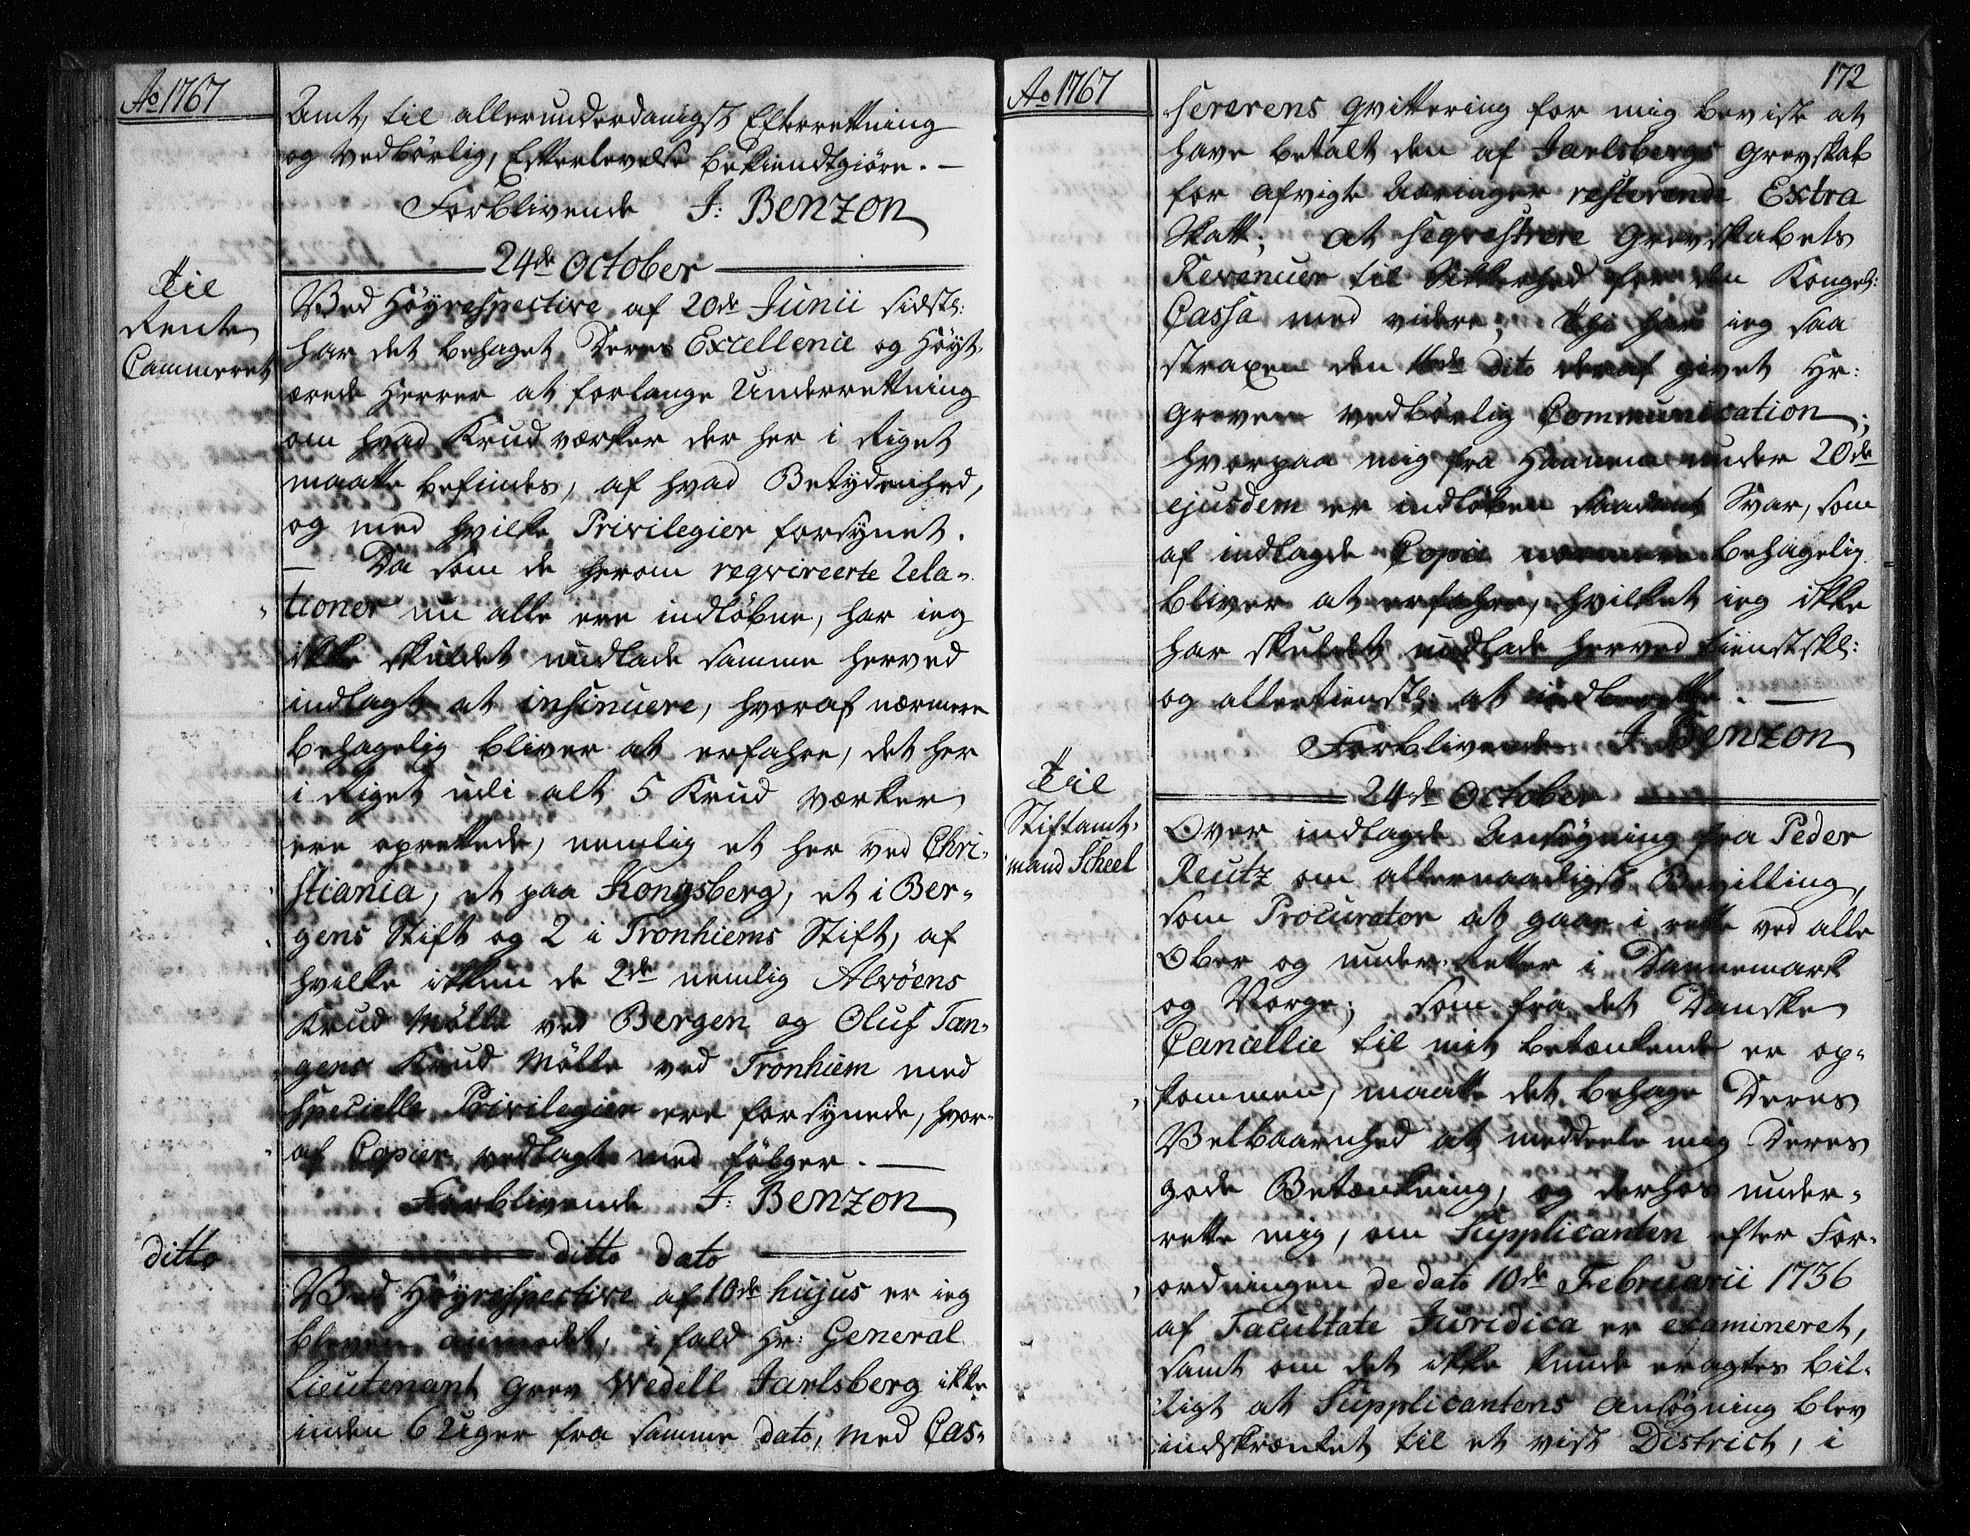 Ao 1767
Amt, til allerunderdanigst Efterrettning
og vedbörlig, Efterlevelse bekiendtgiöre. —
Forblivende J: Benzon
24de October
Til
Rente
Cammeret
Ved Höyrespective af 20de Junii sidstl:
har det behaget Deres Excellence og Höyt-
ærede Herrer at forlange Underrettning
om hvad Krud værker der her i Riget
maatte befindes, af hvad Betydenhed,
og med hvilke Privilegier forsynet.
— Da som de herom reqvireerte Rela-
tioner nu alle ere indlöbne, har ieg
ikke skuldet undlade samme herved
indlagt at insinuere, hvoraf nærmere
behagelig bliver at erfahre, det her
i Riget udi alt 5 Krud værker
ere oprettede, nemlig et her ved Chri-
stiania, et paa Kongsberg, et i Ber-
gens Stift og 2 i Tronhiems Stift, af
hvilke ikkun de 2de nemlig Alvöens
Krud Mölle ved Bergen og Oluf Tan-
gens Krud Mölle ved Tronhiem med
specielle Privilegier ere forsynede, hvor-
af Copier vedlagt med fölger. —
Forblivende J: Benzon
ditto
ditto dato
Ved Höyrespective af 10de hujus er ieg
bleven anmodet, i fald Hr: General
Lieutenant Grev Wedell Jarlsberg ikke
inden 6 Uger fra samme dato, med Cas-
Ao 1767
172
sererens Qvittering for mig beviste at
have betalt den af Jarlsbergs Grevskab
for afvigte Aaringer resterende Extra
Skatt; at seqvestrere Grevskabets
Revenuer til Sikkerhed for den Kongel:
Cassa med videre; Thi har ieg saa
straxen den 16de dito deraf givet Hr:
Greven vedbörlig Communication;
hvorpaa mig fra Hannem under 20de
ejusdem er indlöben saadant Svar, som
af indlagde Copie nærmere behagelig
bliver at erfahre, hvilket ieg ikke
har skuldet undlade herved tienstskl:
og allertienstl: at indberette. —
Forblivende J Benzon
24de October
Til
Stiftamt-
mand Scheel
Over indlagde Ansögning fra Peder
Reutz om allernaadigst Bevilling,
som Procurator at gaae i rette ved alle
Ober og under Retter i Dannemark
og Norge; som fra det Danske
Cancellie til mit betænkende er op-
kommen, maatte det behage Deres
Velbaarnhed at meddeele mig Deres
gode Betænkning, og derhos under-
rette mig, om Supplicanten efter For-
ordningen de dato 10de Februarii 1736
af Facultate Juridica er examineret,
samt om det ikke kunde eragtes bil-
ligt at Supplicantens Ansögning blev
indskrænket til et vist District, i